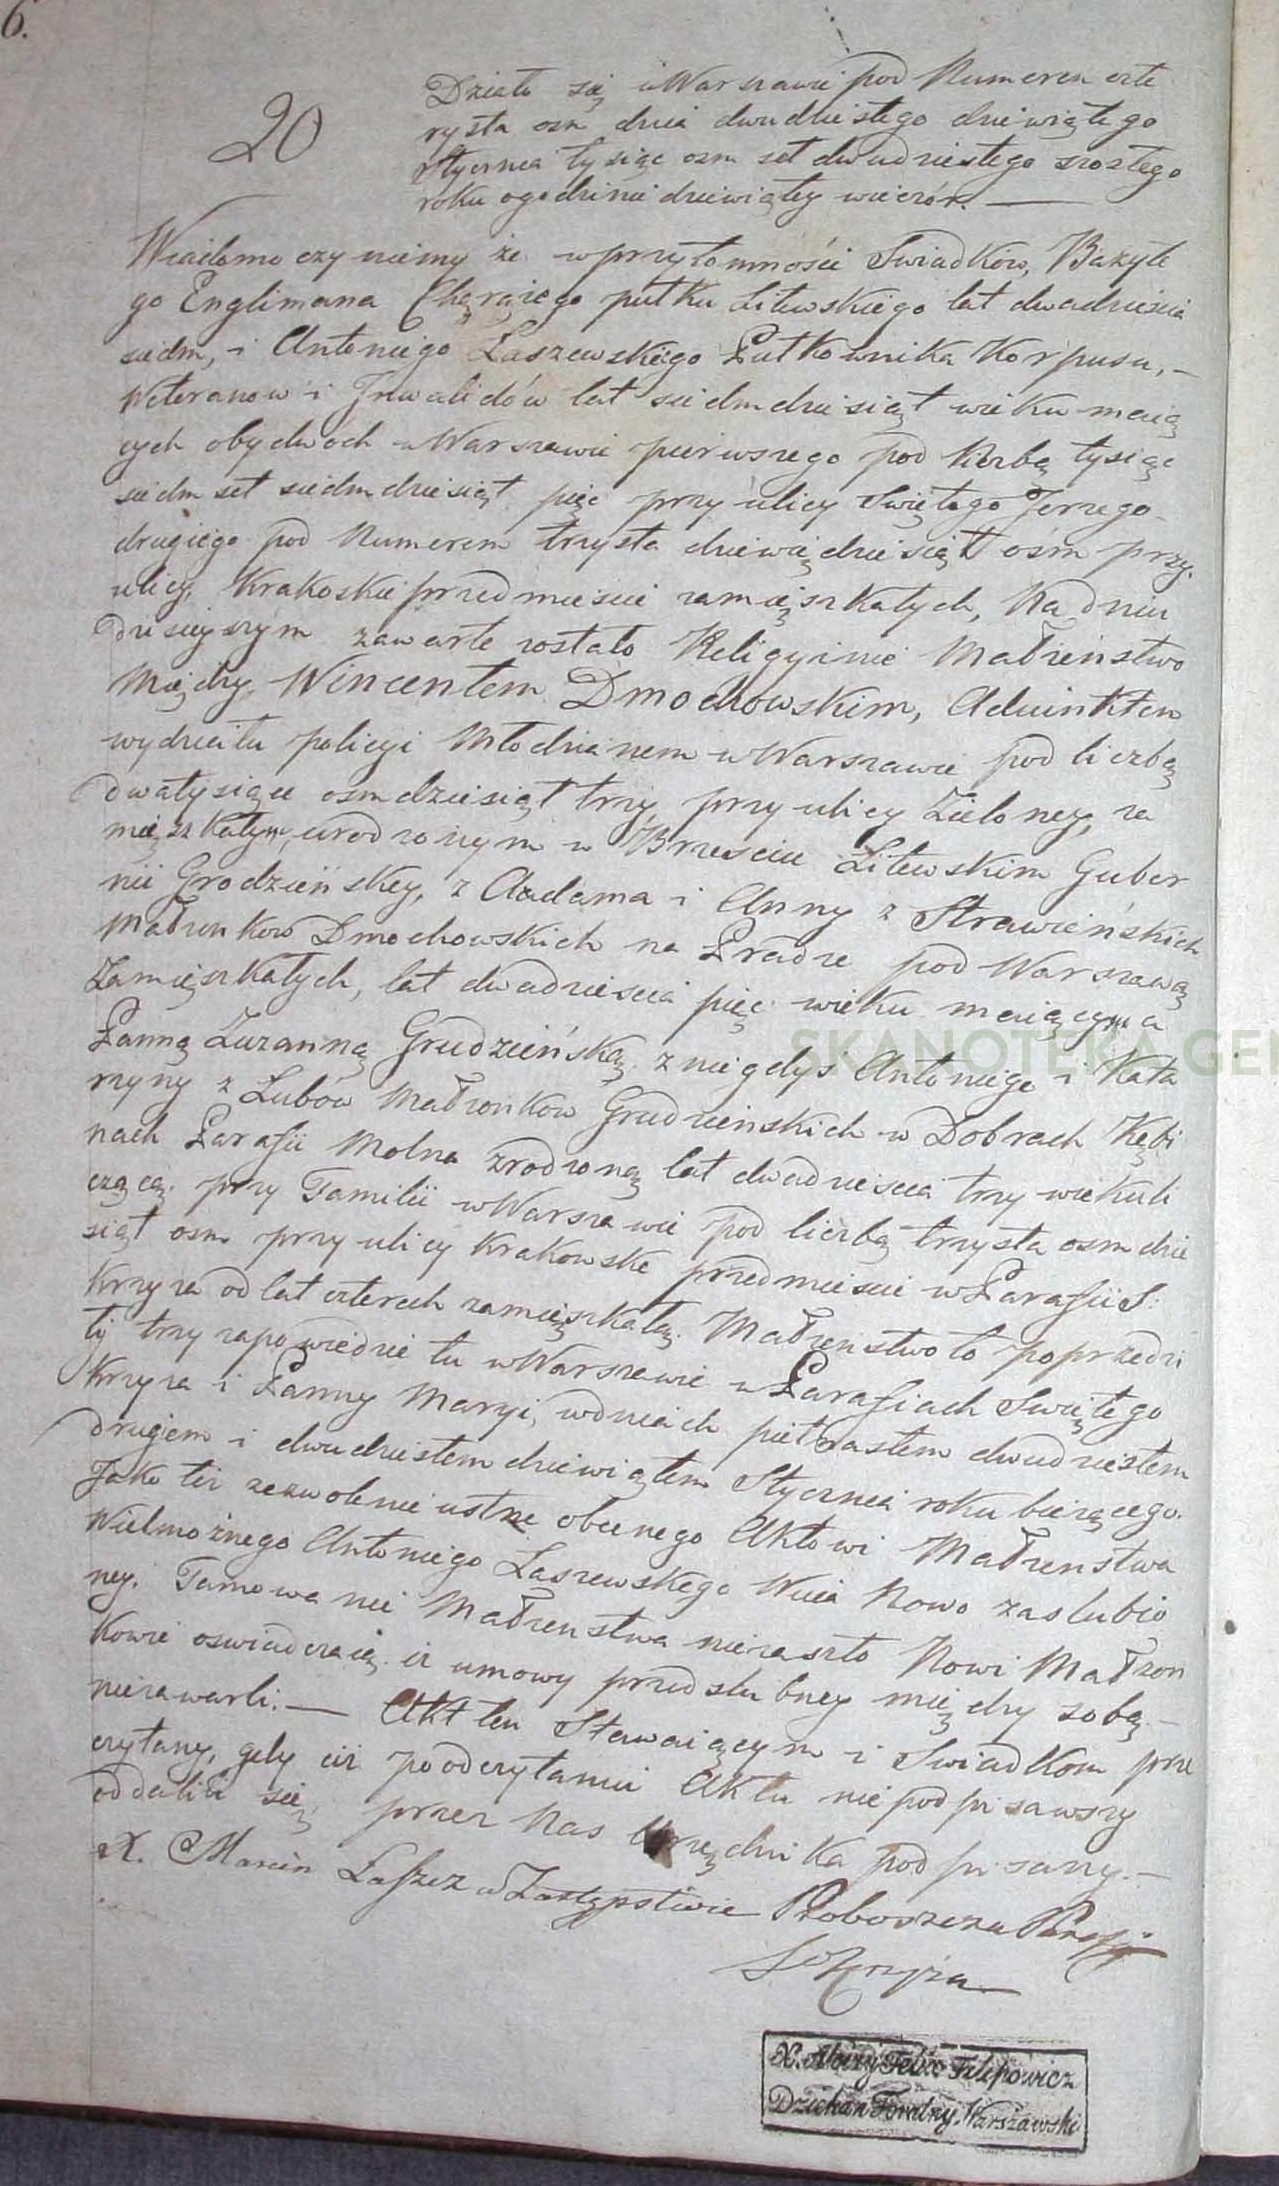 6.
20
Działo się w Warszawie pod Numerem czte
rysta osm dnia dwudziestego dziewiątego
Stycznia tysiąc osm set dwudziestego szostego
roku o godzinie dziewiątey wieczór. —
Wiadomo czyniemy że w przytomności Swiadków, Bazyle
go Englimana Chorążego pułku Litewskiego lat dwadzieścia
siedm, i Antoniego Łaszewskiego Pułkownika Korpusu, –
Weteranow i Inwalidów lat siedmdziesiąt wieku maią
cych obydwoch w Warszawie pierwszego pod liczbą tysiąc
siedm set siedmdziesiąt pięc przy ulicy Swiętego Jerzego
drugiego pod Numerem trzysta dziewiędziesiąt osm przy
ulicy, Krakoskie przedmiescie zamięszkałych, Na dniu
dzisieyszym zawarte zostało Religyine Małżeństwo
Między, Wincentem Dmochowskim, Adiunktem
wydziału policyi Młodzianem w Warszawie pod liczbą
dwatysiące osmdziesiąt trzy, przy ulicy Zieloney, za
mięszkałym, urodzonym w Brzesciu Litewskim Guber
nii Grodzieńskey, z Aadama i Anny z Strawieńskich
Małżonkow Dmochowskich na Pradze pod Warszawą
Zamięszkałych, lat dwadziescia pięc wieku maiącym a
Panną Zuzanną Grudzieńską, z niegdys Antoniego i Kata
rzyny z Lubów Małżonkow Grudzieńskich w Dobrach Kębi
nach Parafii Molna zrodzoną lat dwadziescia trzy wieku li
czącą przy Familii w Warszawie pod liczbą trzysta osmdzie
siąt osm przy ulicy Krakowske przedmiescie w Parafii S:
Krzyza od lat czterech zamięszkałą. Małżenstwo to poprzedzi
ły trzy zapowiedzie tu w Warszawie w Parafiach Swiętego
Krzyza i Panny Maryi, w dniach piętnastem dwudziestem
drugiem i dwudziestem dziewiątem Stycznia roku bieżącego.
Jako też zezwolenie ustne obecnego Aktowi Małżenstwa
Wielmożnego Antoniego Łaszewskego Wuia Nowo zaslubio
ney. Tamowanie Małżenstwa niezaszło Nowi Małżon
kowie oswiadczaią iz umowy przedslubney między sobą –
niezawarli. — Akt ten Stawaiącym i Swiadkom prze
czytany, gdy ciż po odczytaniu Aktu niepodpisawszy
oddalili się, przez Nas Urzędnika podpisany. —
X. Marcin Łaszcz w Zastępstwie Proboszcza Parafii
S. Krzyża
X. Aloizy Felix Filipowicz
Dziekan Foralny. Warszawski
SKANOTEKA.GEN